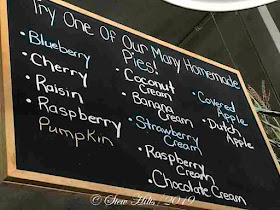 Try One Of Our Many Homemade
Pies!
Blueberry
Cherry
Raisin
Raspberry
Pumpkin
Coconut
Cream
Banana
Cream
Strawberry
Cream
Raspberry
Cream
Chocolate Cream
Covered
Apple
Dutch
Apple
© Stew Hills, 2019